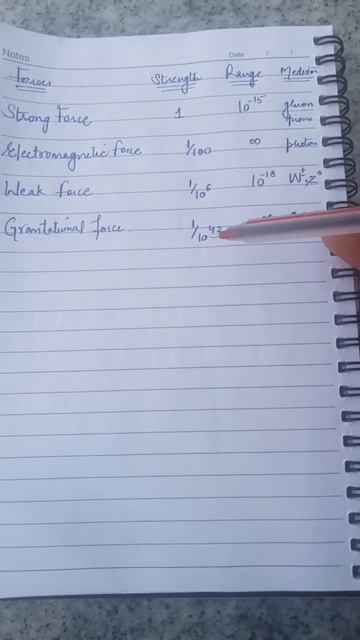 Notes
Date / /
Forces Strength Range Mediator
Strong Force 1 10⁻¹⁵ gluon
pions
Electromagnetic force 1/100 ∞ photon
Weak force 1/10⁶ 10⁻¹⁸ W±, Z⁰
Gravitational force 1/10⁴²